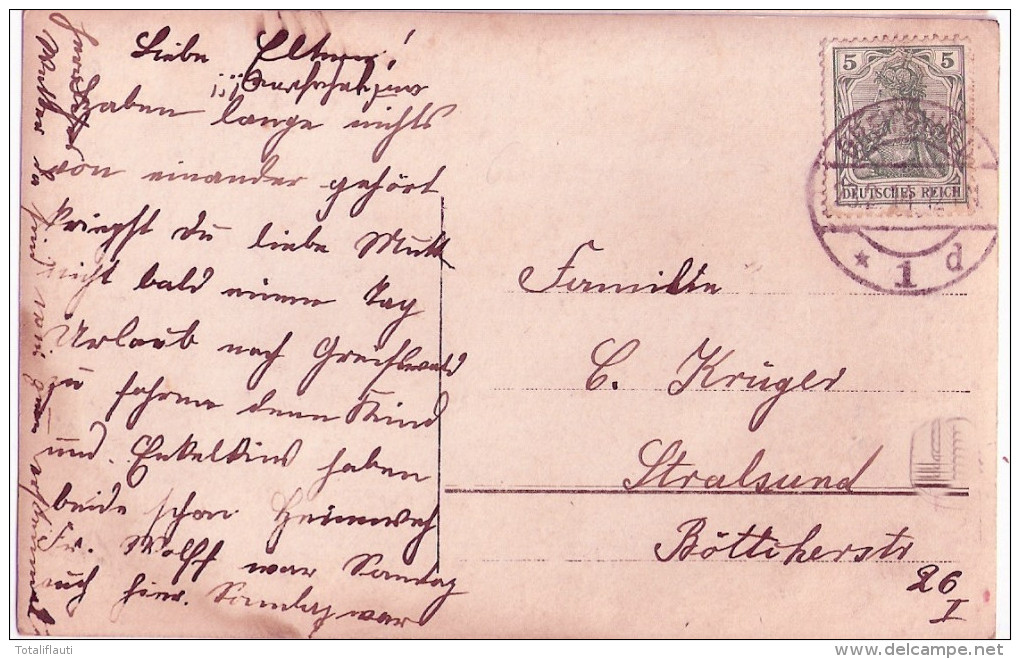 Liebe Eltern!
haben lange nichts
von einander gehört
kriegst du liebe Mutt
nicht bald einen Tag
Urlaub nach Greifswald
zu fahren denn Kind
und Enkelkind haben
beide schon Heimweh
Fr. Wolff war Sonntag
auch hier. Sonntag war
5 5
DEUTSCHES REICH
* 1 d
Familie
C. Krüger
Stralsund
Böttcherstr
26
I
Totaliflauti
delcampe.net